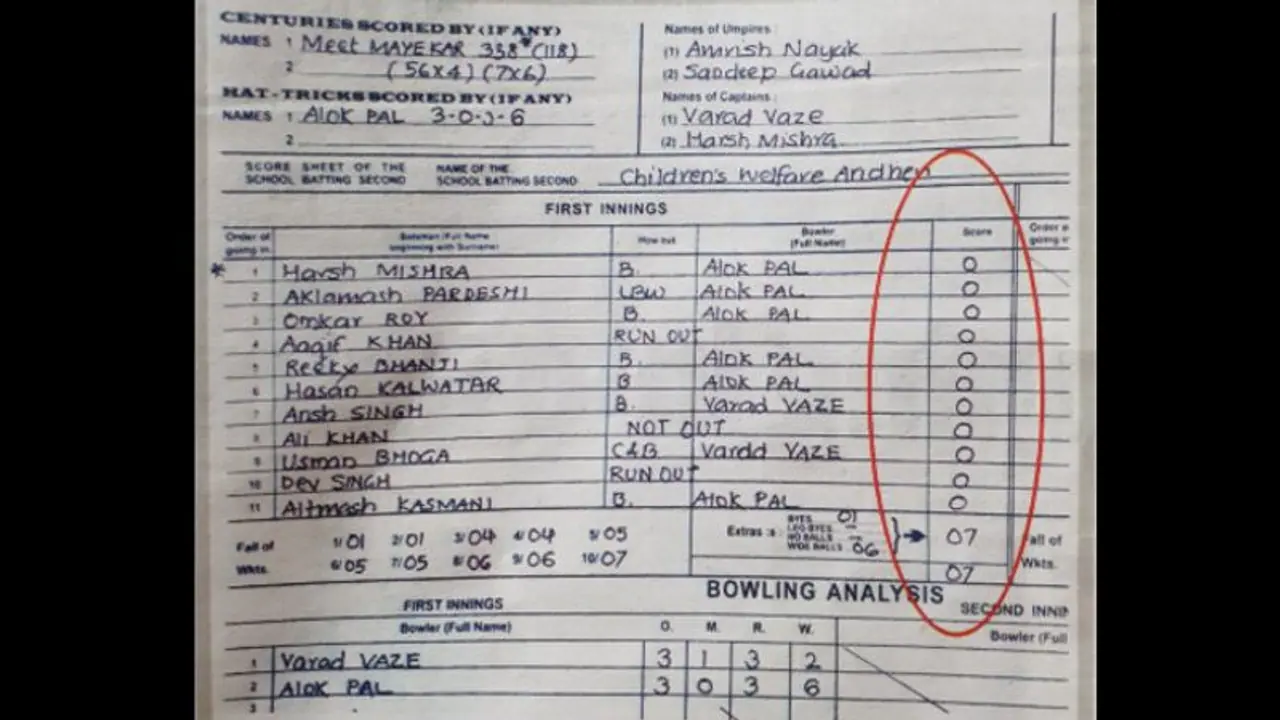 CENTURIES SCORED BY (IF ANY)
NAMES 1 Meet MAYEKAR 338* (118)
2 (56x4) (7x6)
HAT-TRICKS SCORED BY (IF ANY)
NAMES 1 Alok PAL 3-0-3-6
2
Names of Umpires :
(1) Amrish Nayak
(2) Sandeep Gawad
Names of Captains :
(1) Varad Vaze
(2) Harsh Mishra
SCORE SHEET OF THE SCHOOL BATTING SECOND
NAME OF THE SCHOOL BATTING SECOND
Children's Welfare Andheri
FIRST INNINGS
Order of going in Batsman (Full Name beginning with Surname) How out Bowler (Full Name) Score Order
* 1 Harsh MISHRA B. Alok PAL 0
2 Aklamash PARDESHI LBW Alok PAL 0
3 Omkar ROY B. Alok PAL 0
4 Aaqif KHAN RUN OUT 0
5 Recky BHANJI B. Alok PAL 0
6 Hasan KALWATAR B Alok PAL 0
7 Ansh SINGH B. Varad VAZE 0
8 Ali KHAN NOT OUT 0
9 Usman BHOGA C&B Varad VAZE 0
10 Dev SINGH RUN OUT 0
11 Altmash KASMANI B. Alok PAL 0
Fall of Wkts.
1/01 2/01 3/04 4/04 5/05
6/05 7/05 8/06 9/06 10/07
Extras :
BYES 01
LEG BYES —
NO BALLS —
WIDE BALLS 06
07
07
Fall of Wkts.
BOWLING ANALYSIS
FIRST INNINGS
SECOND INNI
Bowler (Full Name) O. M. R. W.
Bowler (Full
1 Varad VAZE 3 1 3 2
2 Alok PAL 3 0 3 6
3